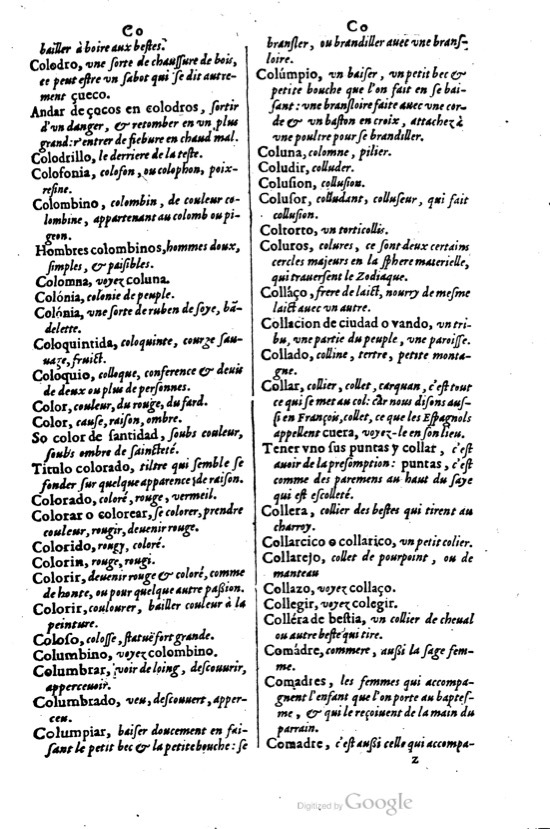 Co
bailler à boire aux bestes.
Colodro, vne sorte de chaussure de bois,
ce peut estre vn sabot qui se dit autre-
ment çueco.
Andar de çocos en colodros, sortir
d'vn danger, & retomber en vn plus
grand: r'entrer de fiebure en chaud mal.
Colodrillo, le derriere de la teste.
Colofonia, colofon, ou colophon, poix-
resine.
Colombino, colombin, de couleur co-
lombine, appartenant au colomb ou pi-
geon.
Hombres colombinos, hommes doux,
simples, & paisibles.
Colomna, voyez coluna.
Colónia, colonie de peuple.
Colónia, vne sorte de ruben de soye, bã-
delette.
Coloquintida, coloquinte, courge sau-
uage, fruict.
Coloquio, colloque, conference & deuis
de deux ou plus de personnes.
Color, couleur, du rouge, du fard.
Color, cause, raison, ombre.
So color de santidad, soubs couleur,
soubs ombre de saincteté.
Titulo colorado, tiltre qui semble se
fonder sur quelque apparence de raison.
Colorado, coloré, rouge, vermeil.
Colorar o colorear, se colorer, prendre
couleur, rougir, deuenir rouge.
Colorido, rougy, coloré.
Colorin, rouge, rougi.
Colorir, deuenir rouge & coloré, comme
de honte, ou pour quelque autre passion.
Colorir, coulourer, bailler couleur à la
peinture.
Coloso, colosse, statuë fort grande.
Columbino, voyez colombino.
Columbrar, voir de loing, descouurir,
apperceuoir.
Columbrado, veu, descouuert, apper-
ceu.
Columpiar, baiser doucement en fai-
sant le petit bec & la petite bouche: se
Co
bransler, ou brandiller auec vne brans-
loire.
Colúmpio, vn baiser, vn petit bec &
petite bouche que l'on fait en se bai-
sant: vne bransloire faite auec vne cor-
de & vn baston en croix, attachez à
vne poultre pour se brandiller.
Coluna, colomne, pilier.
Coludir, colluder.
Colusion, collusion.
Colusor, colludant, colluseur, qui fait
collusion.
Coltorto, vn torticollis.
Coluros, colures, ce sont deux certains
cercles majeurs en la sphere materielle,
qui trauersent le Zodiaque.
Collàço, frere de laict, nourry de mesme
laict auec vn autre.
Collacion de ciudad o vando, vn tri-
bu, vne partie du peuple, vne paroisse.
Collado, colline, tertre, petite monta-
gne.
Collar, collier, collet, carquan, c'est tout
ce qui se met au col: car nous disons aus-
si en François, collet, ce que les Espagnols
appellent cuera, voyez-le en son lieu.
Tener vno sus puntas y collar, c'est
auoir de la presomption: puntas, c'est
comme des paremens au haut du saye
qui est escolleté.
Collera, collier des bestes qui tirent au
charroy.
Collarcico o collarico, vn petit colier.
Collarejo, collet de pourpoint, ou de
manteau
Collazo, voyez collaço.
Collegir, voyez colegir.
Colléra de bestia, vn collier de cheual
ou autre beste qui tire.
Comàdre, commere, aussi la sage fem-
me.
Comadres, les femmes qui accompa-
gnent l'enfant que l'on porte au baptes-
me, & qui le reçoiuent de la main du
parrain.
Comadre, c'est aussi celle qui accompa-
z
Digitized by Google